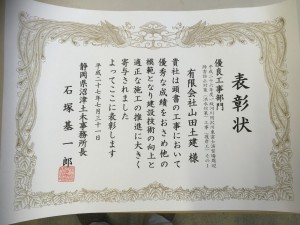 表彰状
優良工事部門
有限会社山田土建 様
貴社は頭書の工事において
優秀な成績をおさめ他の
模範となり建設技術の向上と
適正な施工の推進に大きく
寄与されました
よってここに表彰します
平成二十七年七月三十一日
静岡県沼津土木事務所長
石塚基一郎